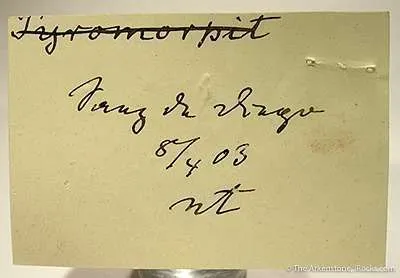 Pyromorpit
Sanz de Diego
8/4 03
nt
© The Arkenstone, iRocks.com